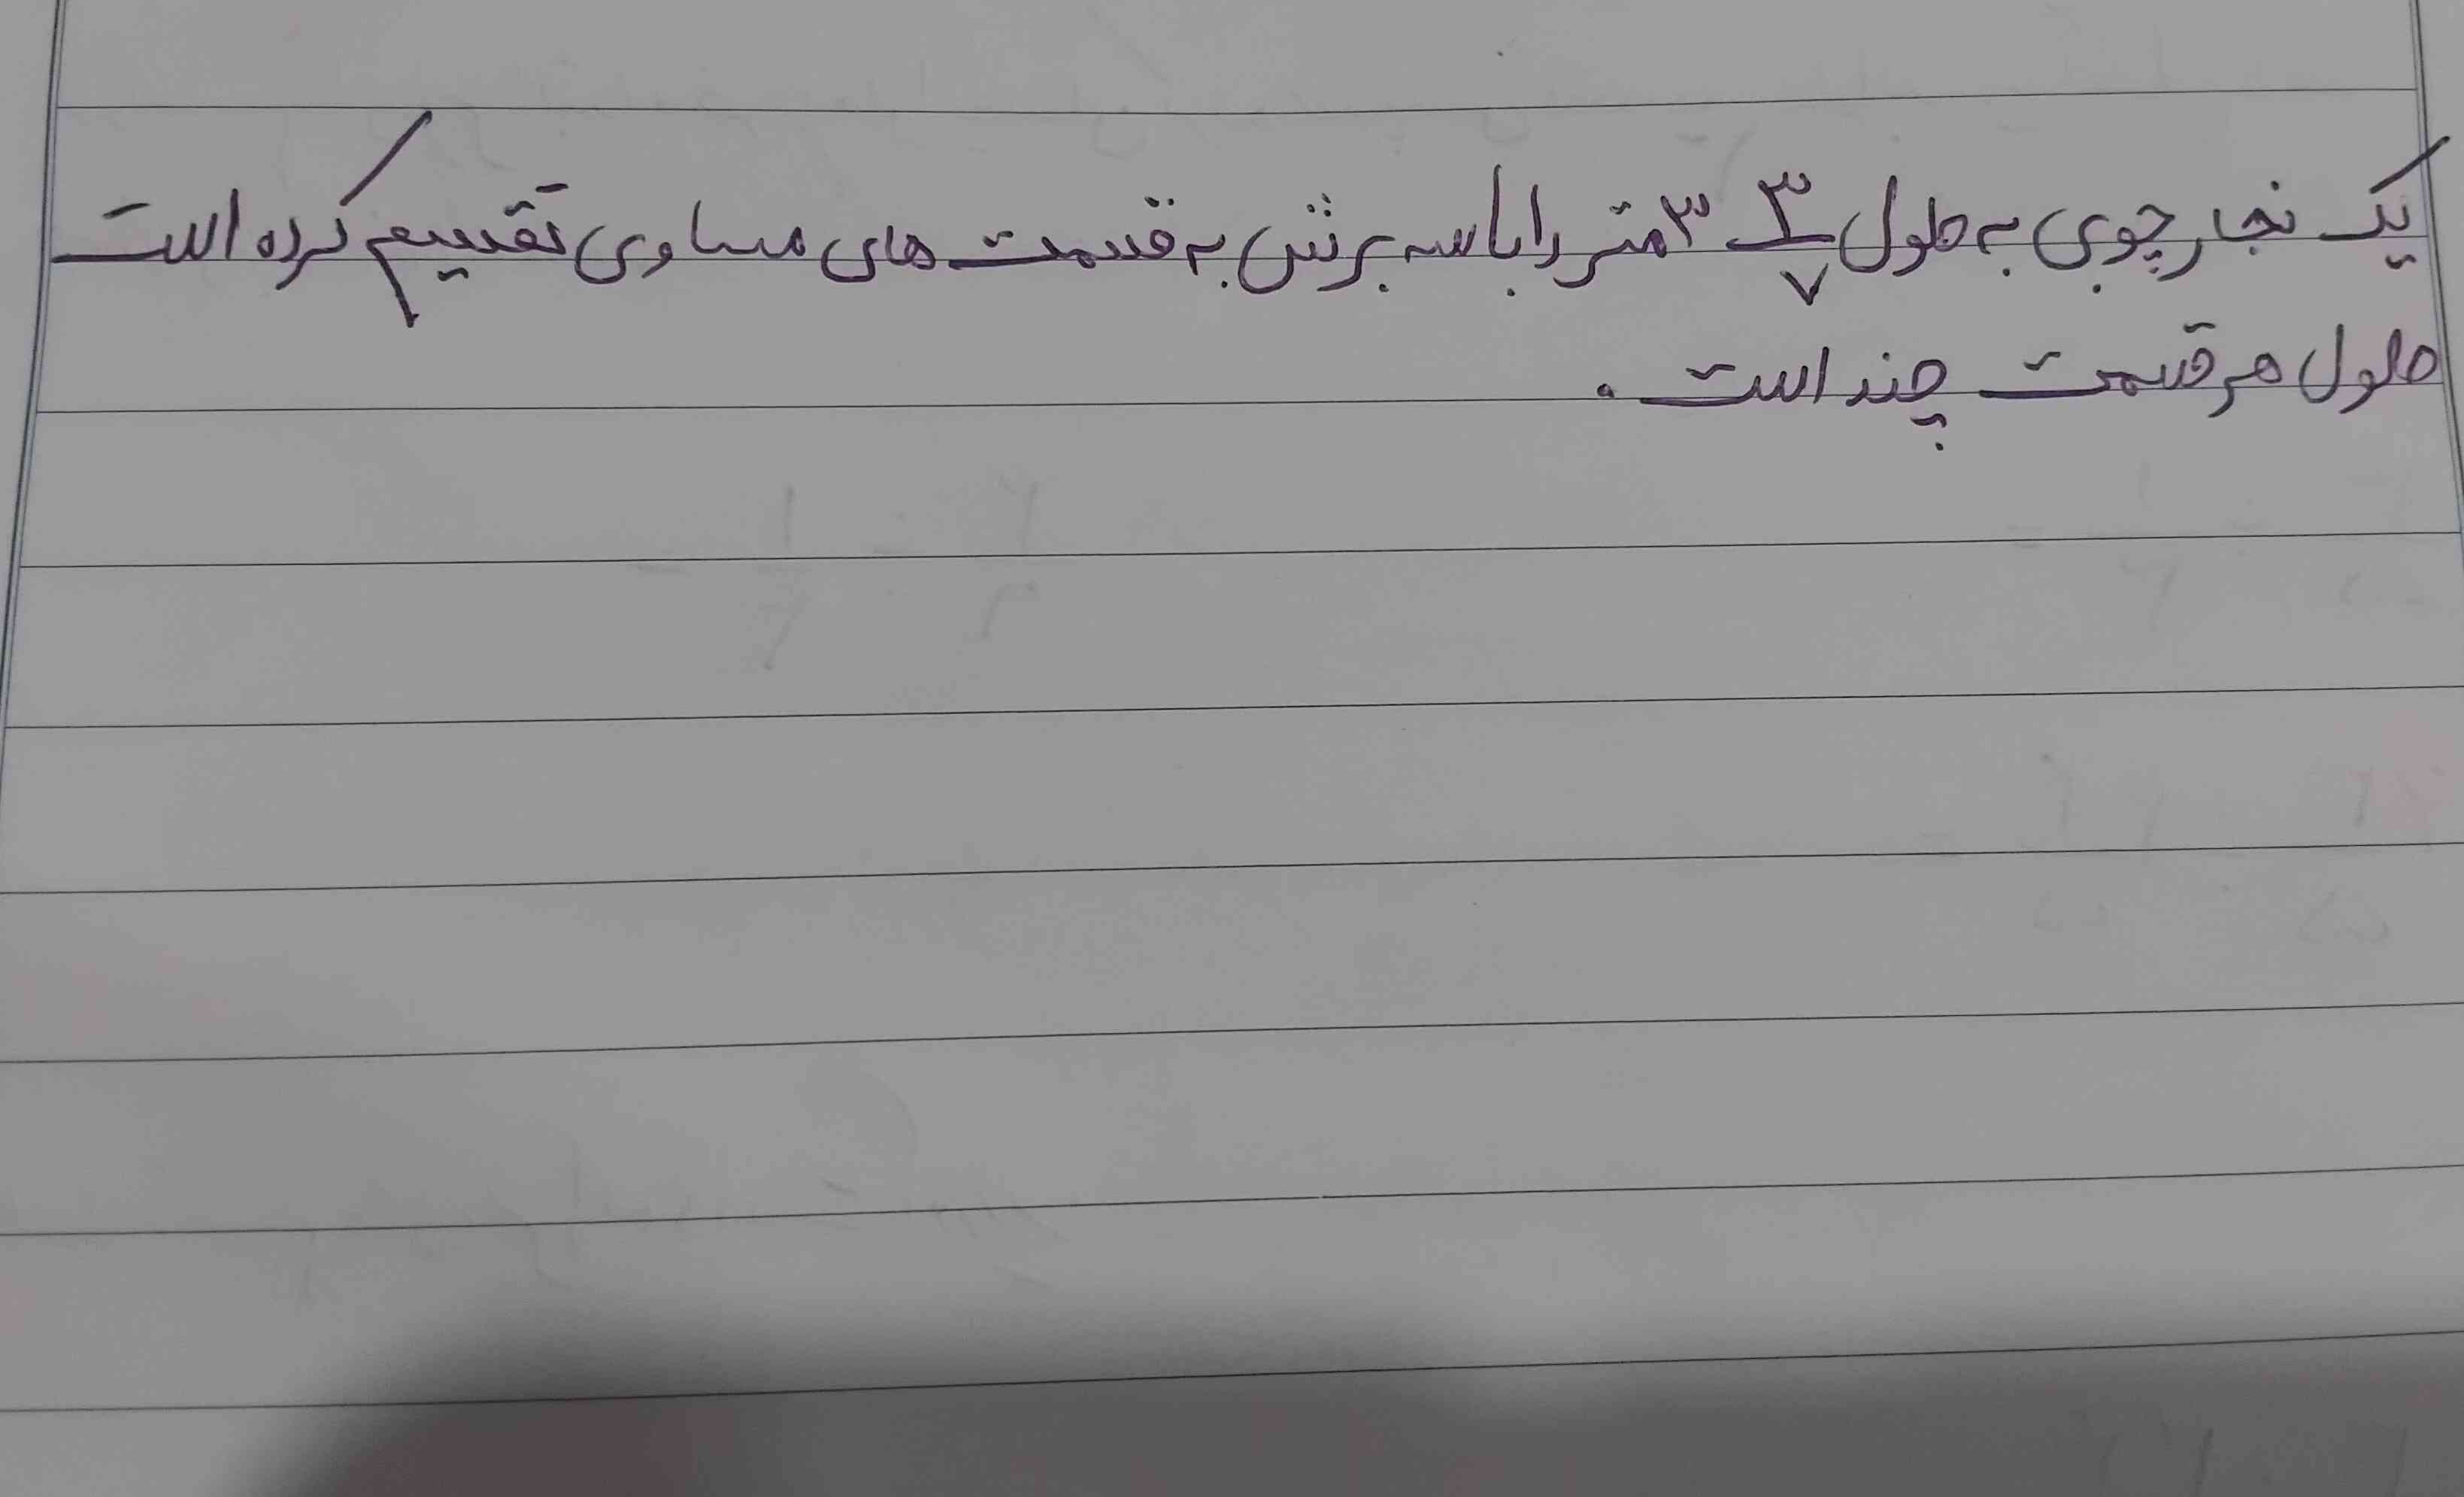 یک نجار چوبی به طول ۳/۷ ۳ متر را با سه برش به قسمت های مساوی تقسیم کرده است
طول هر قسمت چند است .